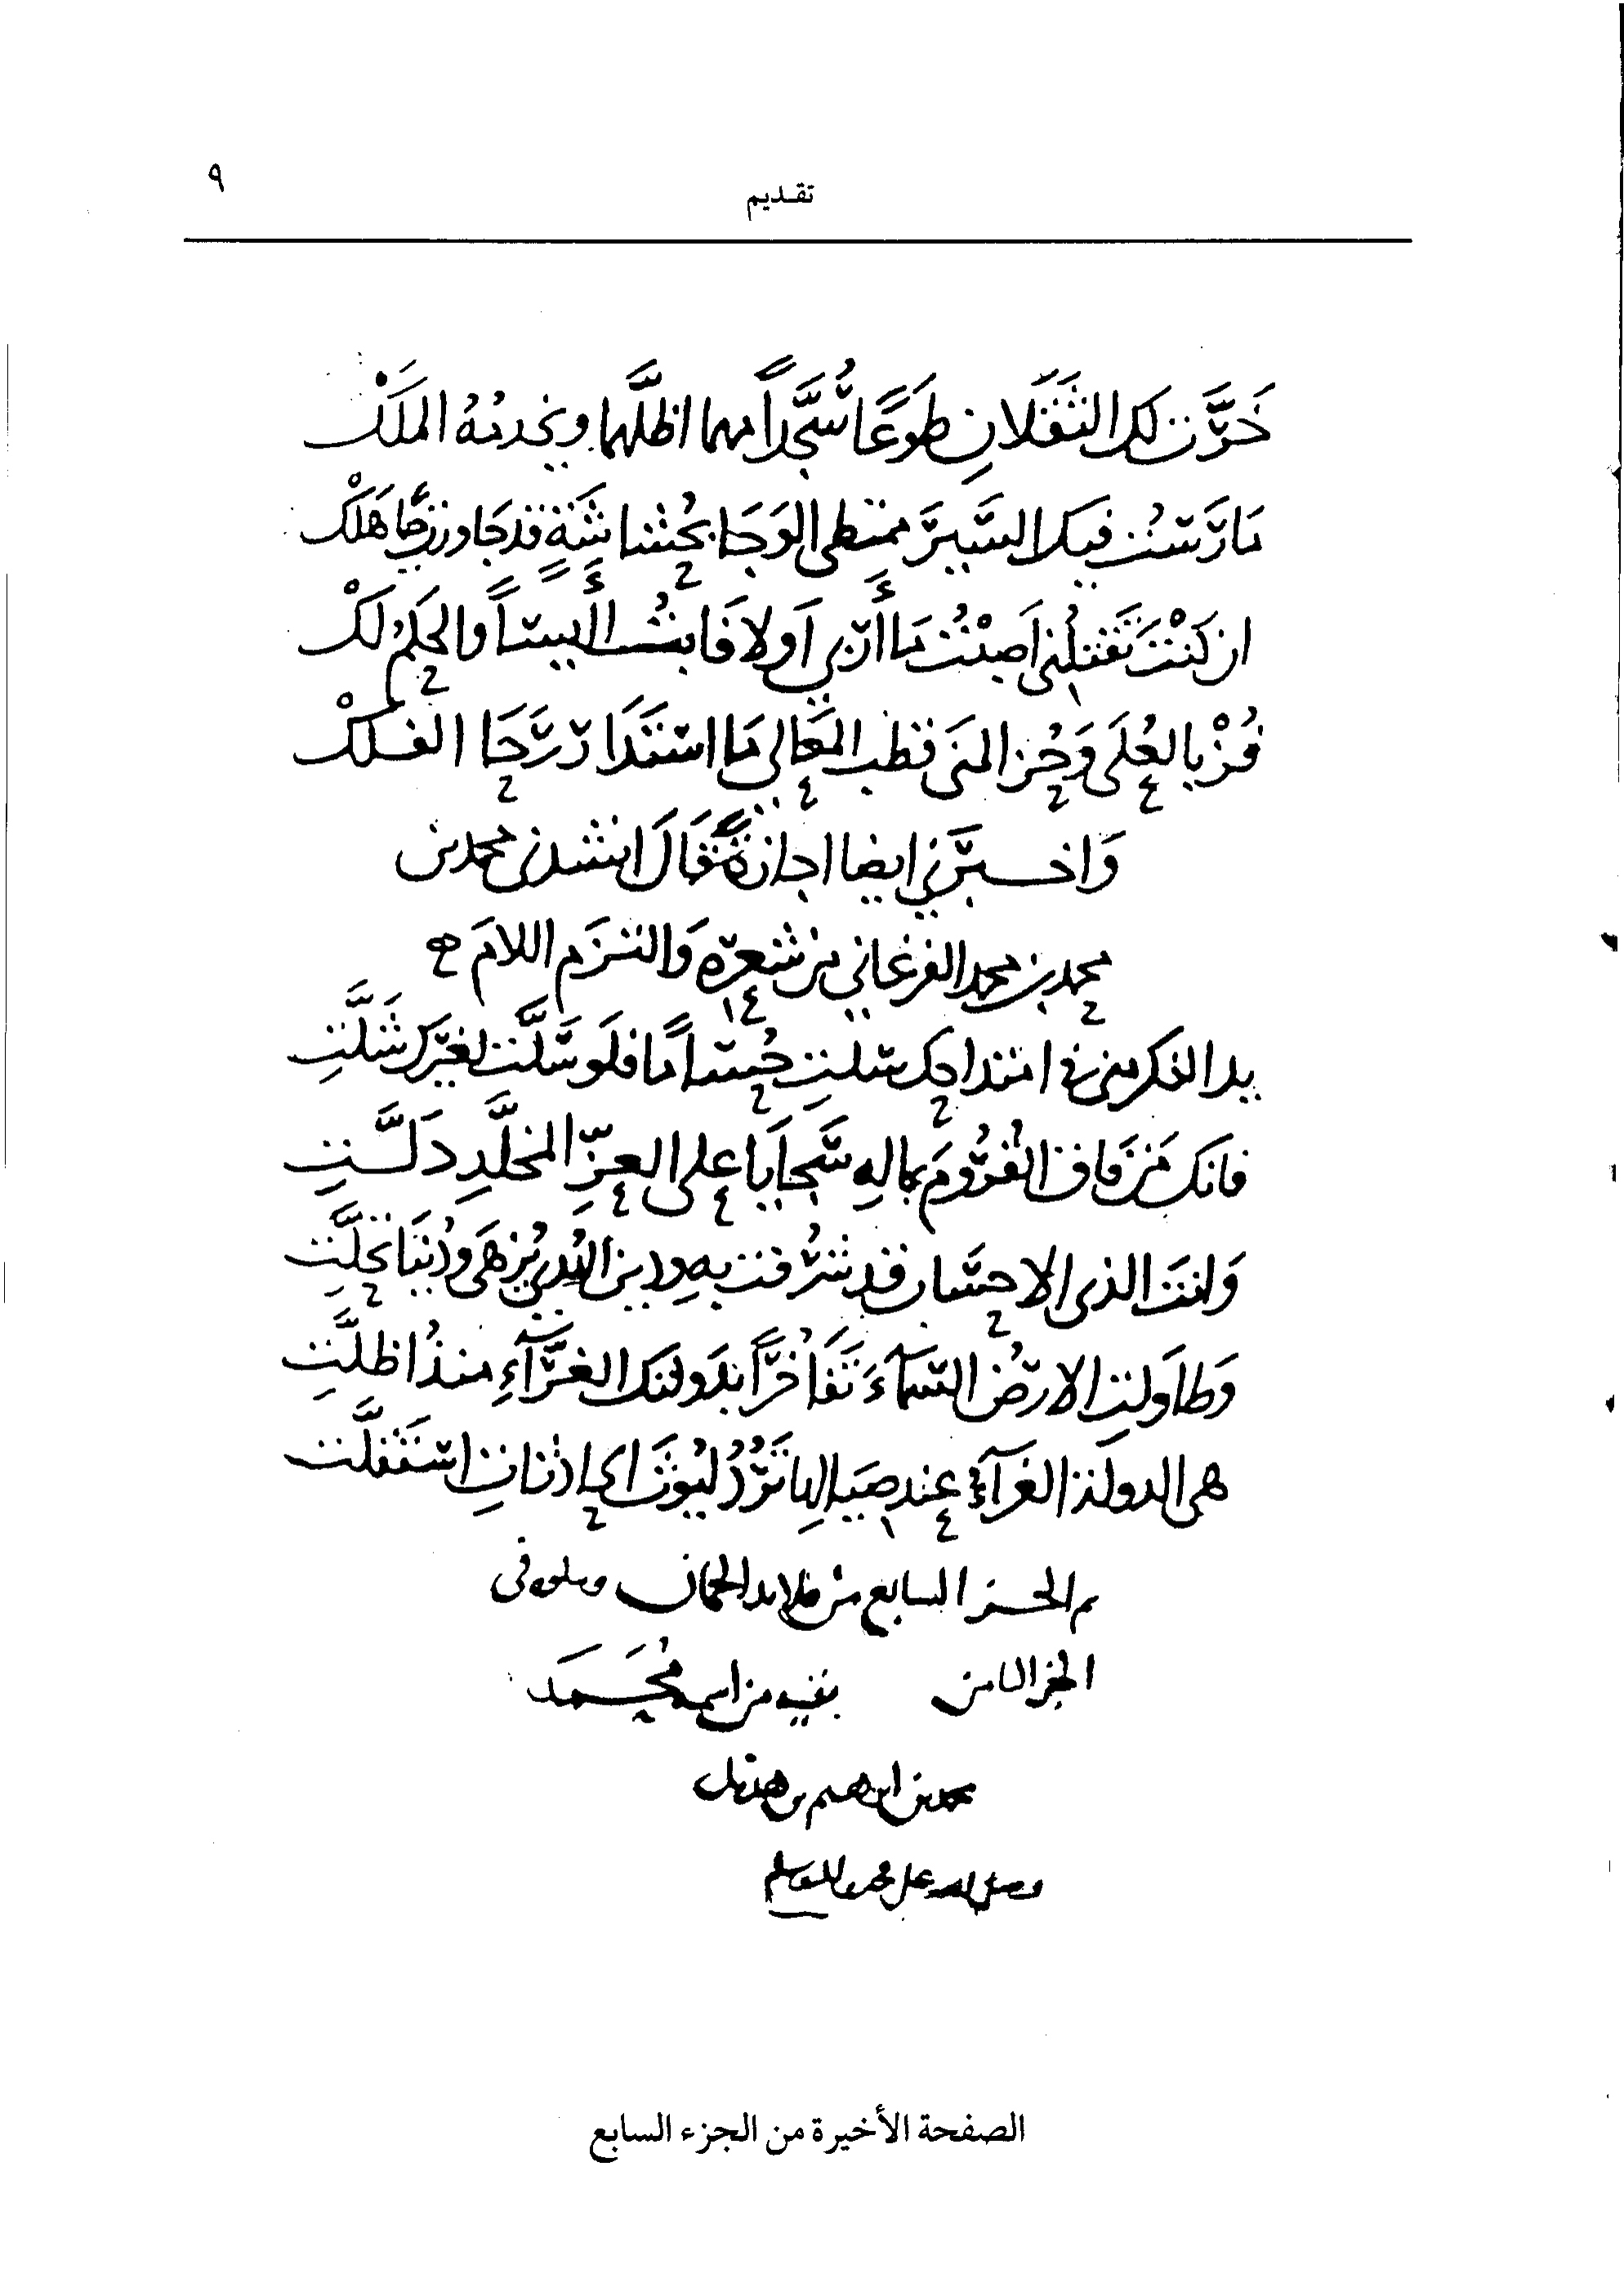 تقديم
٩
خَرَّت لك الثَقَلانِ طَوعًا سُجَّداً مهما اظلَّهما ويخدمُهُ الملَكْ
مَارَسْتُ فيك السَّيرَ ممتطى الوَجَا بحُشاشَةٍ قد جَاوزت هَلَكْ
ان كنْتَ تَقتلُنى اَصبْتُ مَأاربى اَولا فَابتُ البيتاً والحكمُ لَكْ
فُزْ بالعُلَى وَحُز المنَى قطب المَعَالى مَا استَدَارَ رَحَا الفلكْ
وَاخبرَني ايضا اجازةً قَالَ انشدنى محمد بن
محمد بن محمد الفرغاني من شعره وَالتزَم اللامَ
يدا الفكر منى فى امتداحك سلت حُساماً فلَو سَلَّت لغيرك شلَّتِ
فانك مَن فاق القُرُومَ بماله سَجَايَا على العزِّ المخلَّدِ دَلَّتِ
وَانتَ الذى الاحسَان قد شرُفت به ودين الهُدى يُزهَى ودُنيَا تجلَّت
وَطاوَلتِ الارضُ السَّمآءَ تَفَاخُراً بدَولتك الغرَّآءِ منذُ اظلَّتِ
هى الدولة الغرآءُ عند صيَالها تَرُدُّ ليُوثَ الحادثاتِ استَقلَّت
تم الجزء السابع من قلائد الجمان ويتلوه فى
الجزء الثامن بقية من اسمه مُحَمد
محمد بن ابرهيم بن هذيل
وصلى الله على محمد وآله وسلم
الصفحة الأخيرة من الجزء السابع